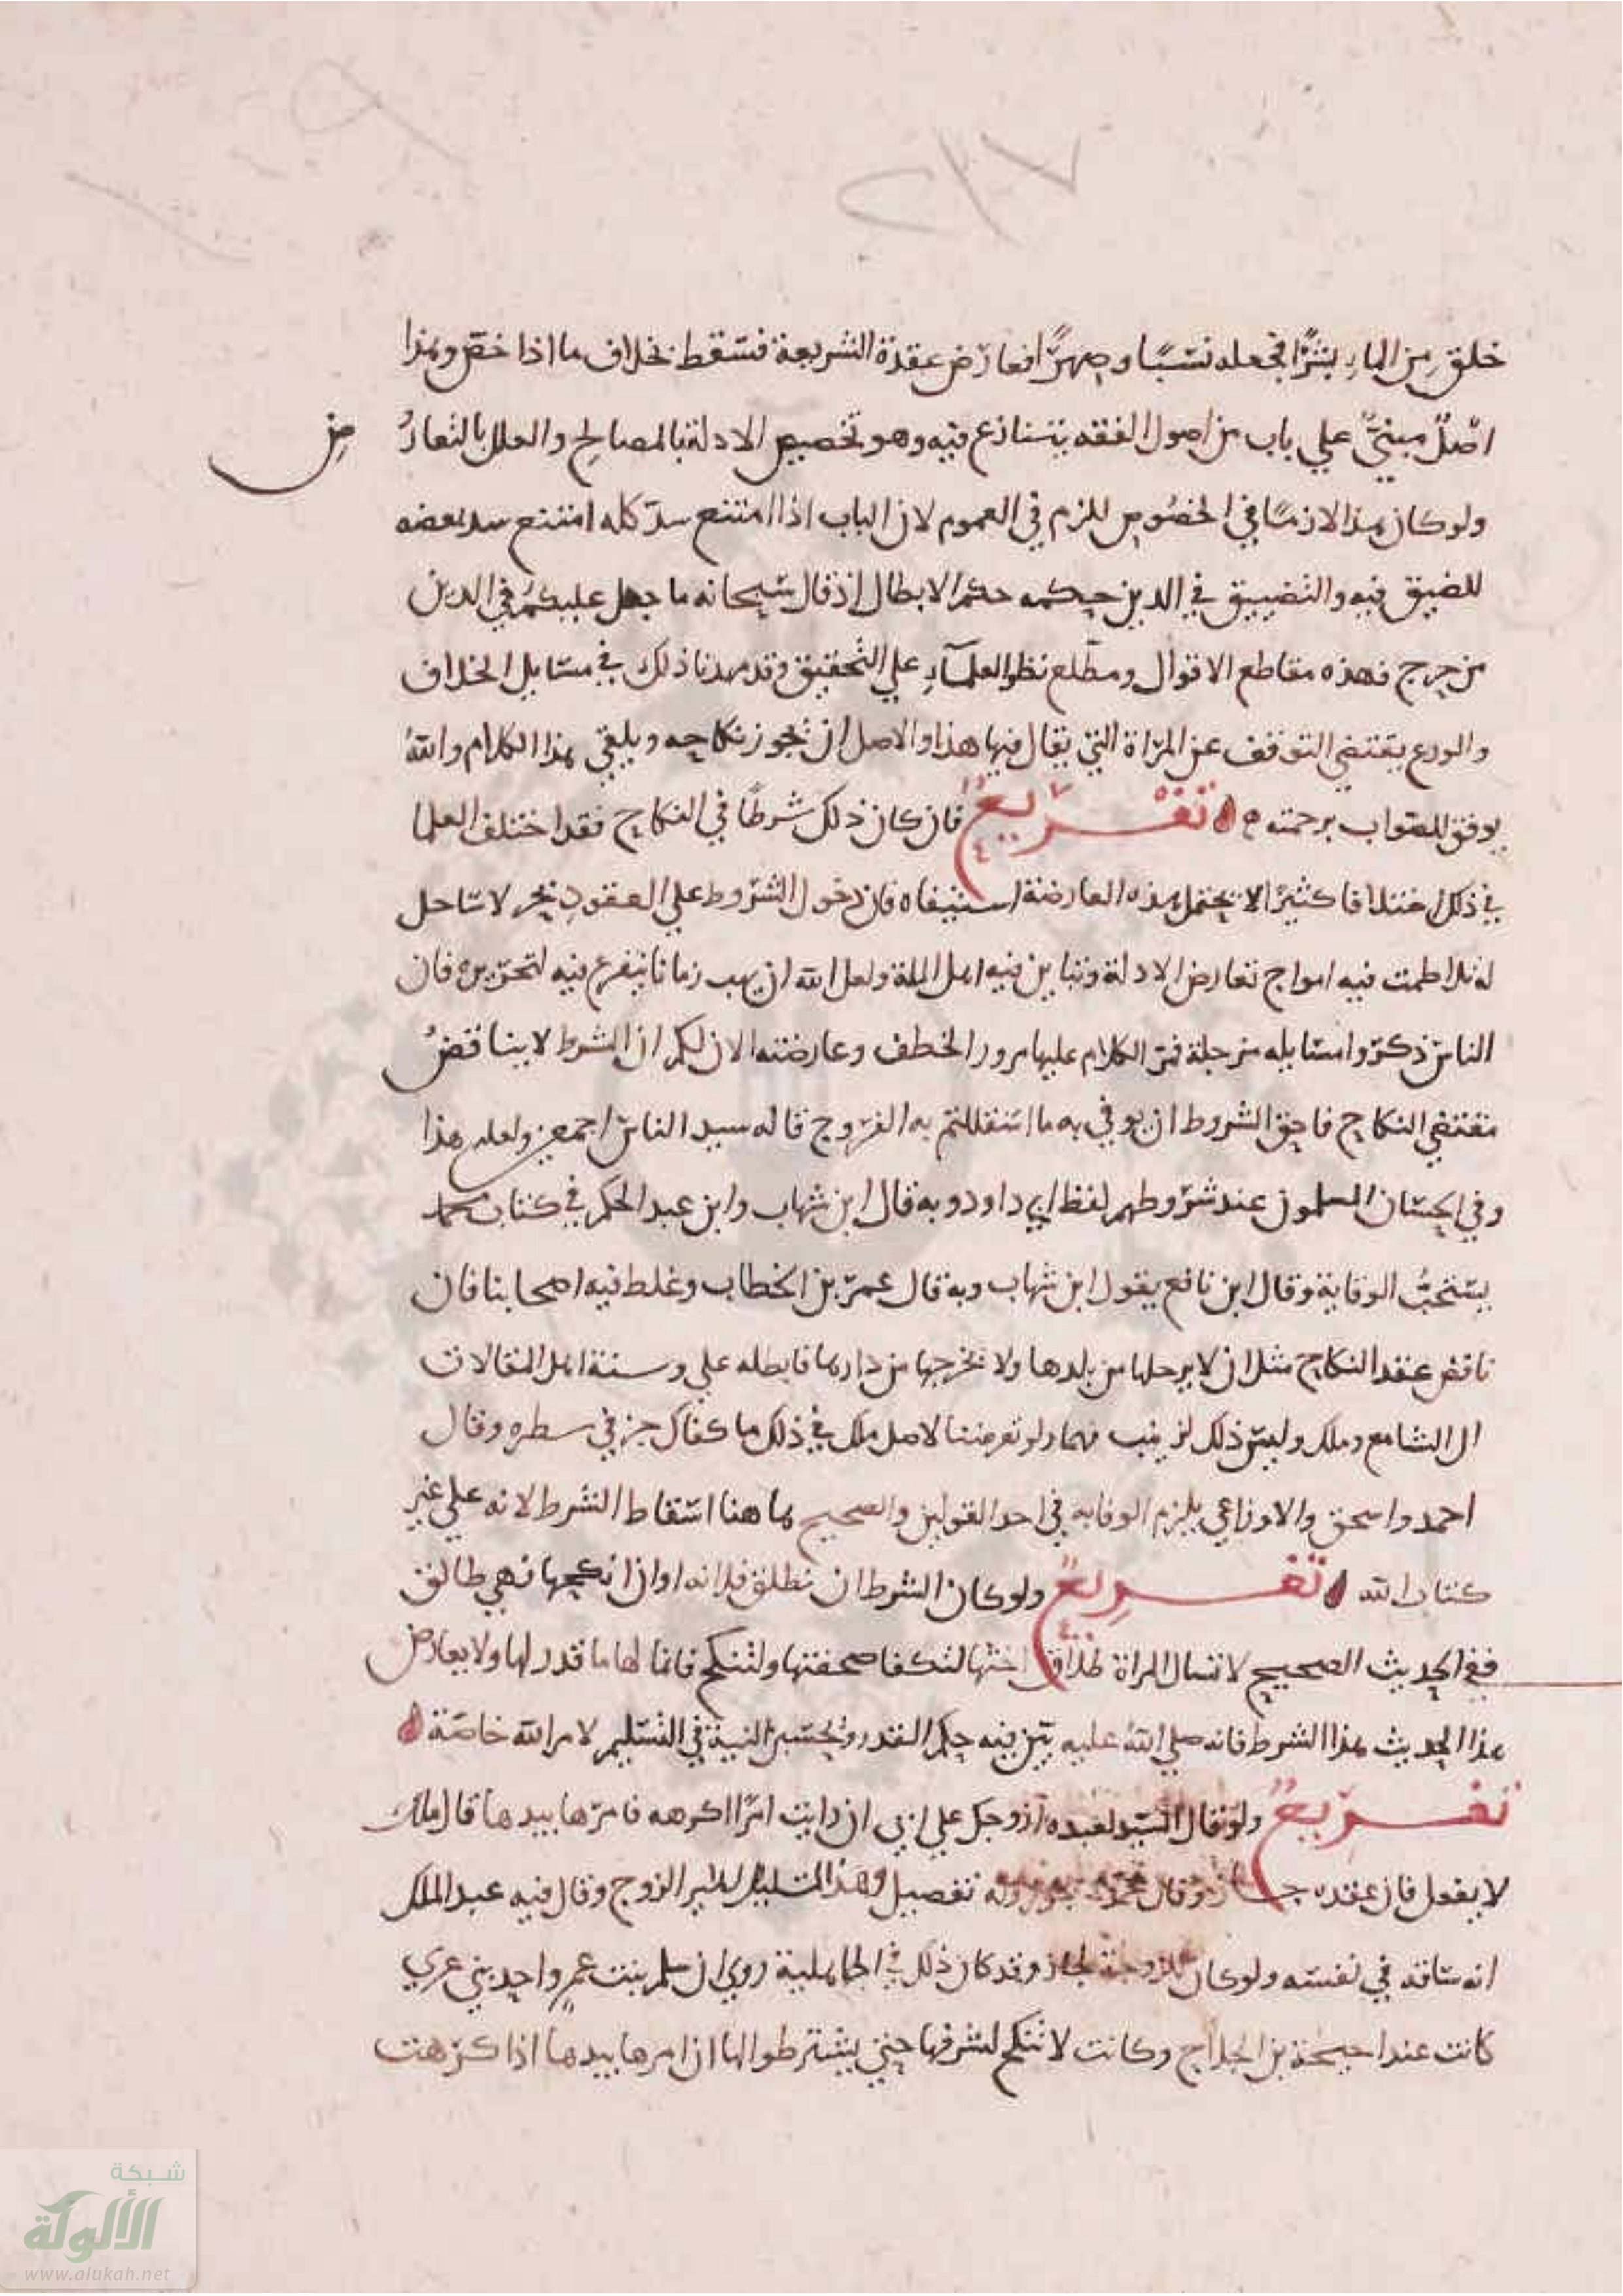 خلق من الماء بشرًا فجعله نسبًا وصهرًا فعارض عقدة الشريعة فسقط بخلاف ما اذا خص وهذا
اصل مبني علي باب من اصول الفقه يتنازع فيه وهو تخصيص الادلة بالمصالح والعلل بالتعارض
ولو كان هذا لازمًا في الخصوص للزم في العموم لان الباب اذا امتنع سد كله امتنع سد بعضه
للضيق فيه والتضييق في الدين حكمه حكم الابطال اذ قال سبحانه ما جعل عليكم في الدين
من حرج فهذه مقاطع الاقوال ومطلع نظر العلمآء علي التحقيق وقد مهدنا ذلك في مسايل الخلاف
والورع يقتضي التوقف عن المراة التي يقال فيها هذا والاصل ان يجوز نكاحه ويلغي هذا الكلام والله
يوفق للصواب برحمته تفريع فان كان ذلك شرطًا في النكاح فقد اختلف العلما
في ذلك اختلافا كثيرًا لا يحتمل هذه العارضة استيفاه فان دخول الشروط علي العقود بحر لا ساحل
له تلاطمت فيه امواج تعارض الادلة وتباين فيه اهل الملة ولعل الله ان يهب زمانا نتفرغ فيه لتحريره فان
الناس ذكروا مسايله من جملة فمر الكلام عليها مرور الخطف وعارضته الان لكم ان الشرط لا يناقض
مقتضي النكاح فاحق الشروط ان يوفي به ما استحللتم به الفروج قاله سيد الناس اجمعين ولعله هذا
وفي الحسان المسلمون عند شروطهم لفظ ابي داود وبه قال ابن شهاب وابن عبد الحكم في كتاب محمد
يستحب الوفاية وقال ابن نافع بقول ابن شهاب وبه قال عمر بن الخطاب وغلط فيه اصحابنا فان
ناقض عقد النكاح مثل ان لا يرحلها من بلدها ولا يخرجها من دارها فابطله علي وسنة اهل المقالات
ال الشافعي وملك وليس ذلك ولو تعرضنا لاصل ملك في ذلك ما كفاك جز في سطره وقال
احمد واسحق والاوزاعي يلزم الوفا به في احد القولين والصحيح هاهنا اسقاط الشرط لانه علي غير
كتاب الله تفريع ولو كان الشرط ان تطلق فلانه او ان انكحها فهي طالق
ففي الحديث الصحيح لا تسال المراة طلاق اختها لتكفا صحفتها ولتنكح فانما لها ما قدر لها ولا يعارض
هذا الحديث هذا الشرط فانه صلي الله عليه بين فيه حكم القدر النية في التسليم لامر الله خاصة
تفريع ولو قال السيد لعبده ازوجك علي اني ان رايت امرًا اكرهه فامرها بيدها قال ملك
لا يفعل فان عقده جاز وقال محمد وله تفصيل وهذا الزوج وقال فيه عبد الملك
انه ساقه في نفسه ولو كان للزوجة لجاز وقد كان ذلك في الجاهلية روي ان سلمي بنت عمرو احد بني عدي
كانت عند احيحة بن الجلاح وكانت لا تنكح لشرفها حتي يشترطوا لها ان امرها بيدها اذا كرهت
شبكة
الألوكة
www.alukah.net